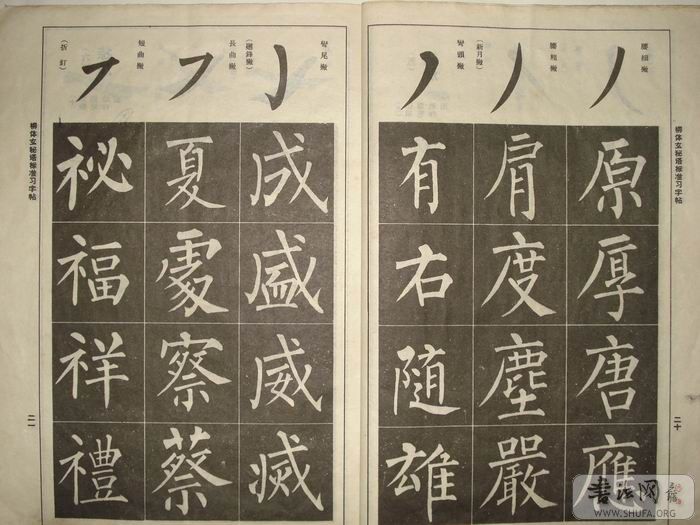 柳体玄秘塔标准习字帖
二十
腰細撇
原厚唐應
腰粗撇
肩度塵嚴
彎頭撇
(新月撇)
有右隨雄
彎尾撇
(迴鋒撇)
成盛威滅
長曲撇
夏處察蔡
短曲撇
(折釘)
祕福祥禮
柳体玄秘塔标准习字帖
二一
书法网
WWW.SHUFA.ORG